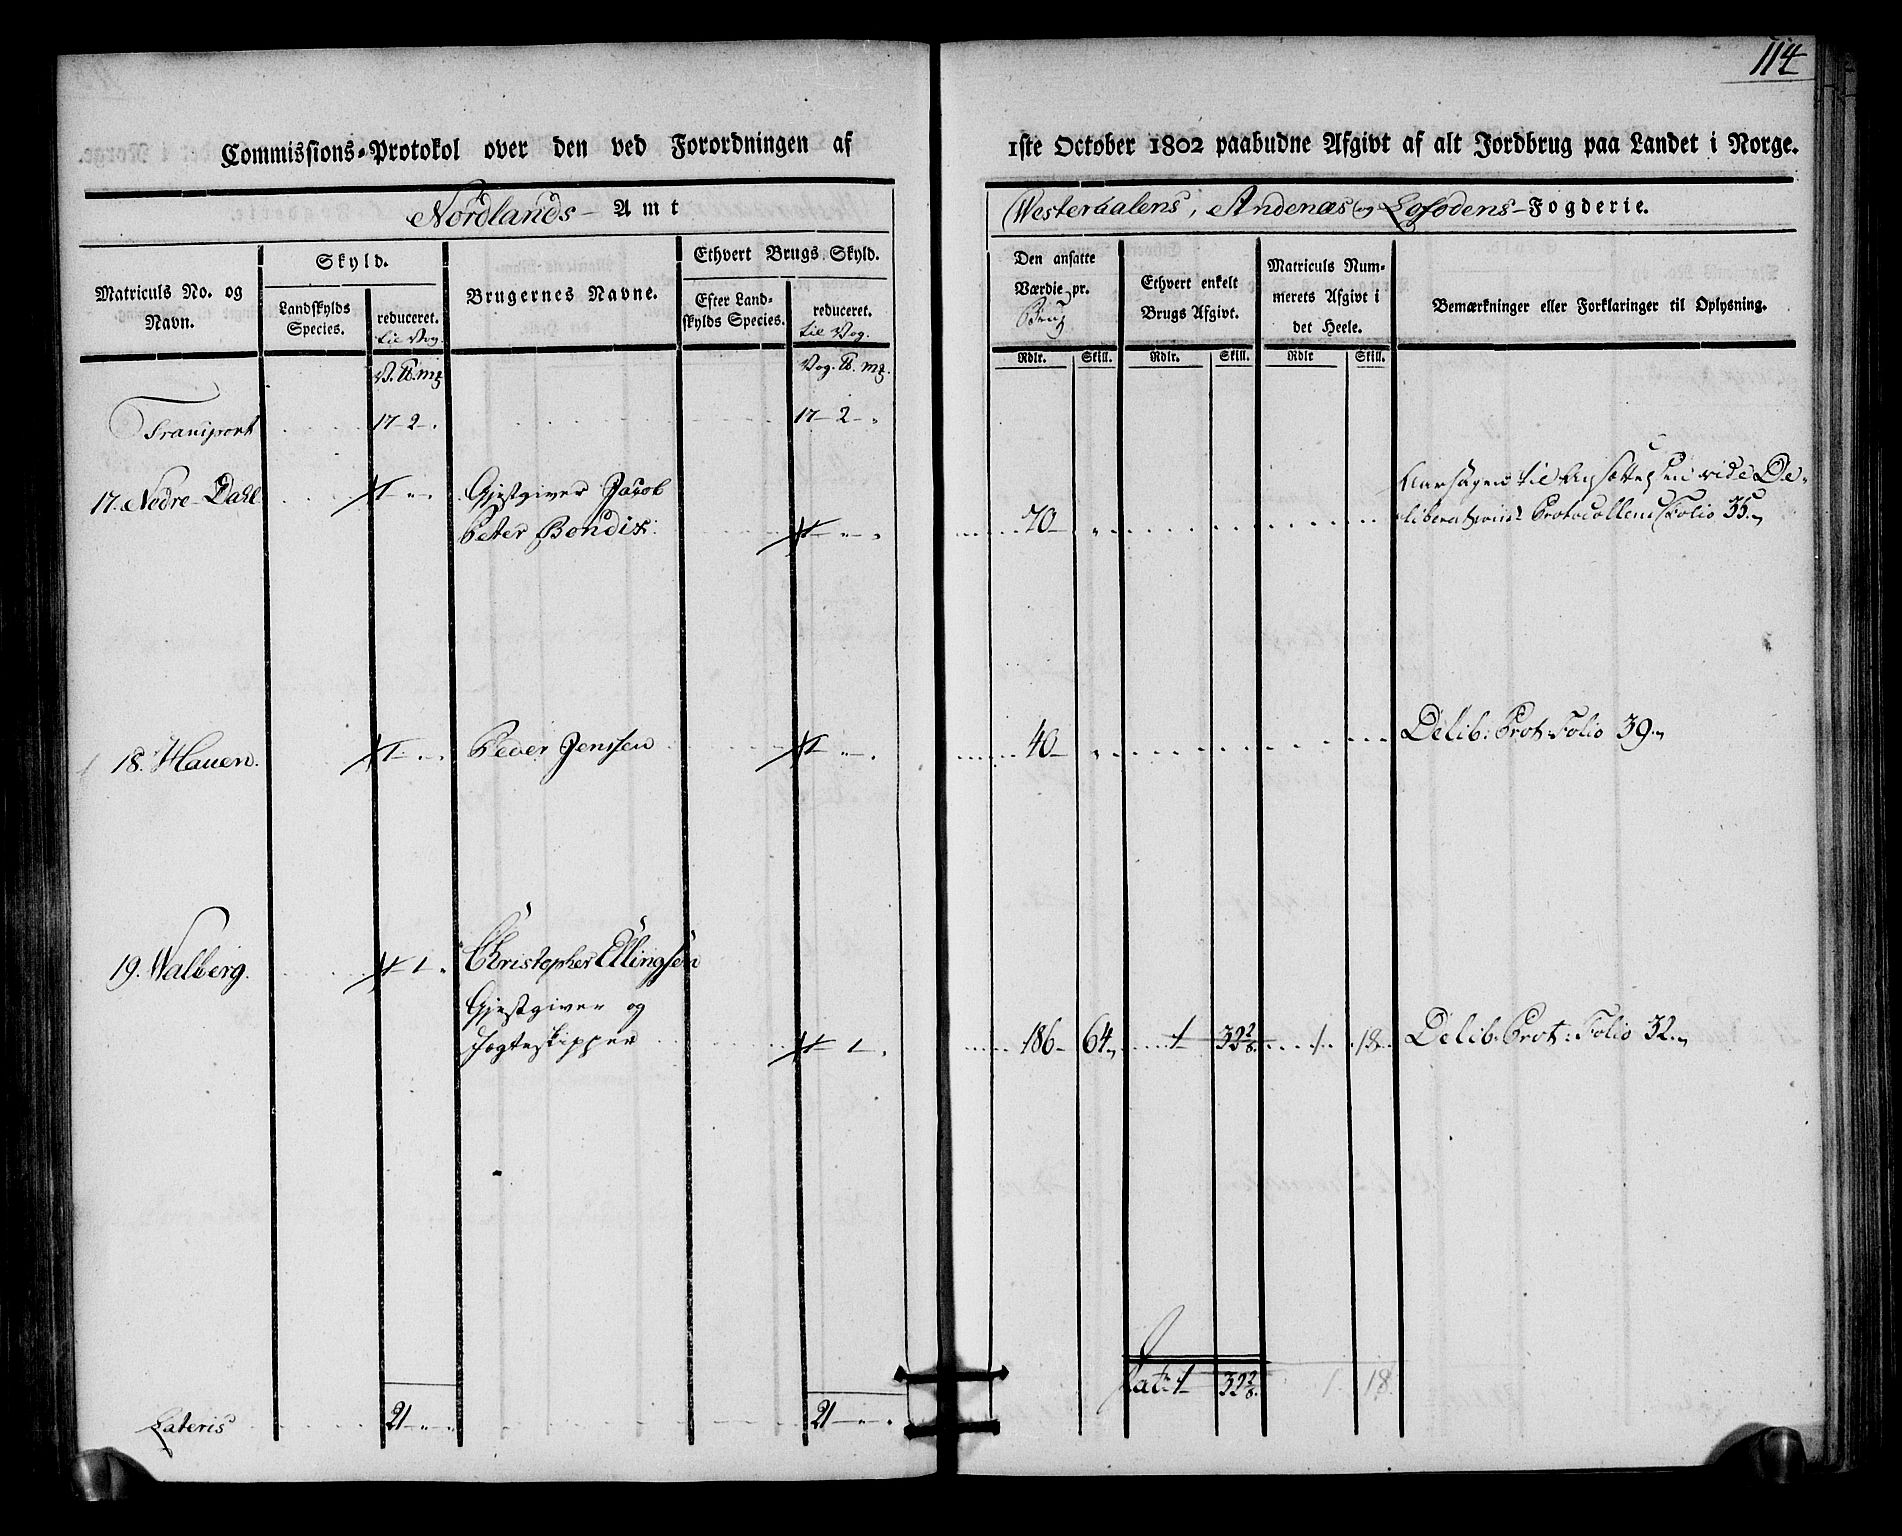 114
Commissions-Protokol over den ved Forordningen af 1ste October 1802 paabudne Afgivt af alt Jordbrug paa Landet i Norge.
Nordlands-Amt
Westeraalens, Andenæs og Lofodens-Fogderie.
Matriculs No. og Navn.
Skyld.
Landskylds Species.
reduceret. til Vog.
Brugernes Navne.
Ethvert Brugs Skyld.
Efter Landskylds Species.
reduceret. til Vog.
Den ansatte Værdie pr. Brug
Ethvert enkelt Brugs Afgivt.
Matriculs Nummerets Afgivt i det Heele.
Bemærkninger eller Forklaringer til Oplysning.
V. ℔. mq
Vog. ℔. mq.
Rdlr. Skill. Rdlr. Skill. Rdlr Skill.
Transport 17 - 2 - " 17 - 2 - "
17. Nedre-Dahl Gjestgiver Jacob
Peter Bondix: 70 - " Protocollens Folio 35.
18. Hauen. Peder Jenssen 40 - " Delib: Prot: Folio 39.
19. Walberg. 1 Christopher Ellingsen
Gjestgiver og
Jogteskipper 1 186 - 64 1 32 2/8 1 18 Delib: Prot: Folio 32.
Lat: 1 32 2/8 1 18
Lateris 21 - " - " 21 - " - "